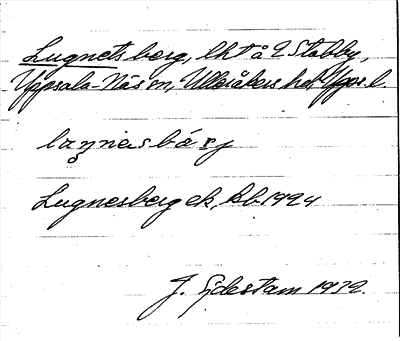 Lugnets berg, lht å 2 Stabby,
Uppsala-Näs sn, Ulleråkers hd, Upps. l.
Lugnesberg ek, kb. 1924
J. Sjdestam 1932.